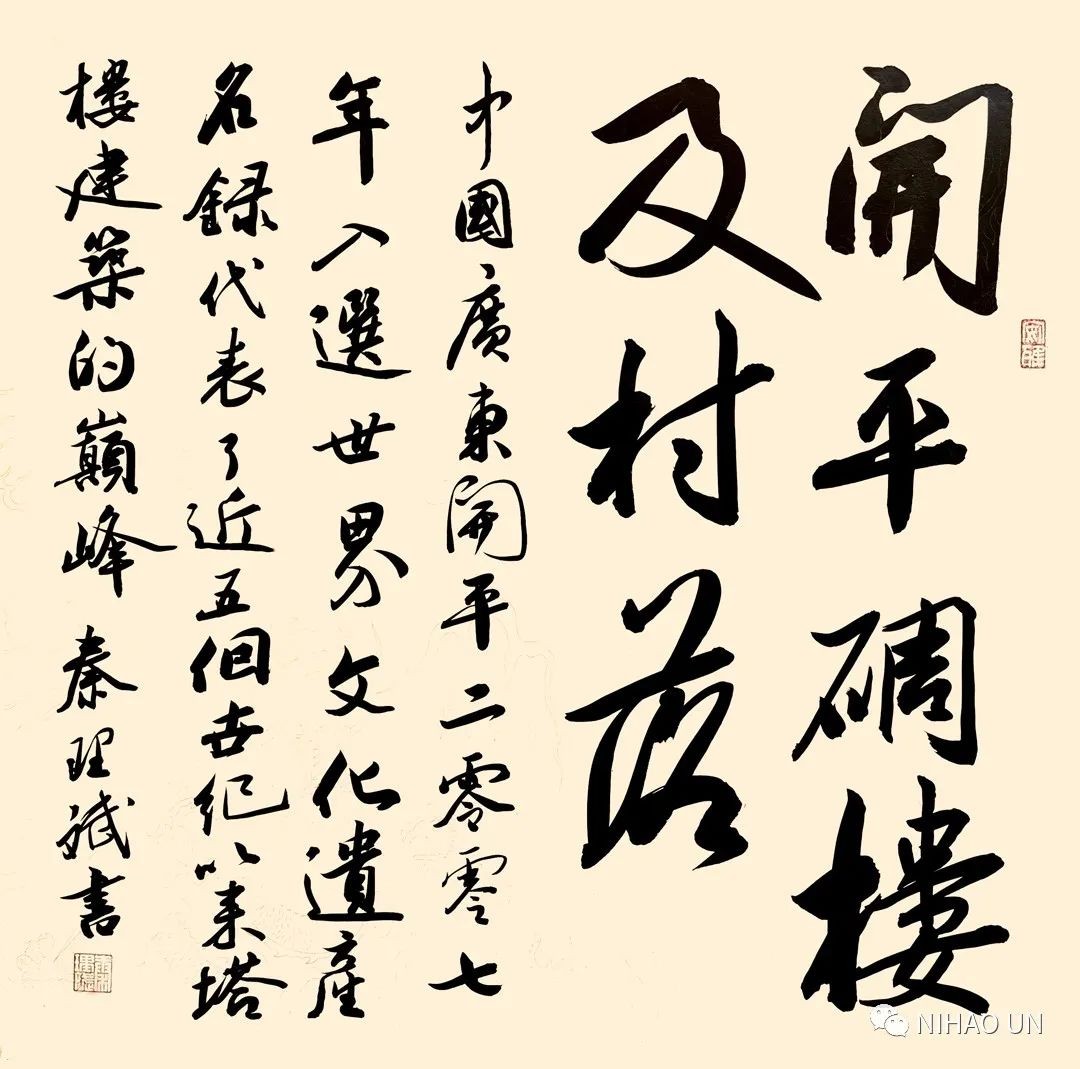 開平碉樓
及村落
中國廣東開平二零零七
年入選世界文化遺產
名録代表了近五個世紀以来塔
樓建築的巔峰 秦理斌書
NIHAO UN